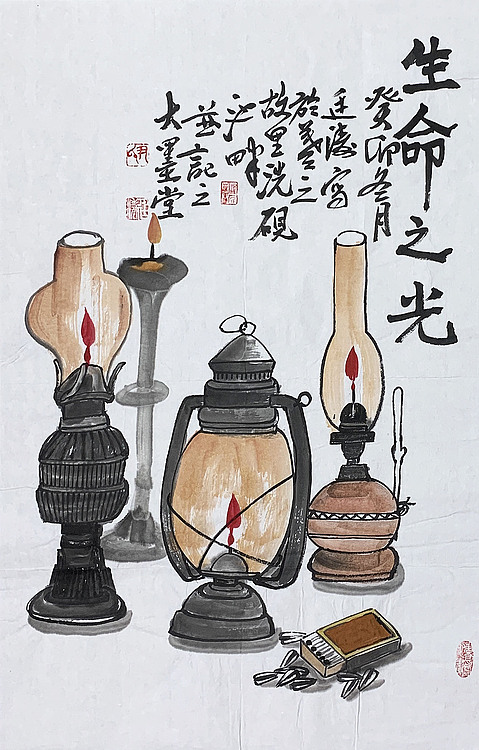 生命之光
癸卯冬月
廷濤寫
於羲之
故里洗硯
池畔
並記之
大墨堂